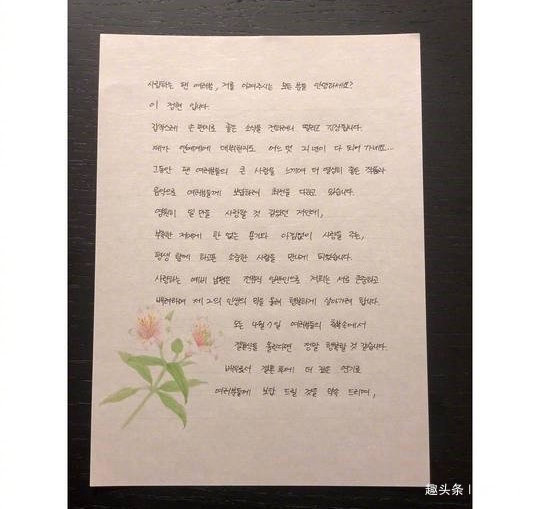 사랑하는 팬 여러분, 저를 아껴주시는 모든 분들 안녕하세요?
이 정현 입니다.
갑작스레 손 편지로 좋은 소식을 전하려니 떨리고 긴장됩니다.
제가 연예계에 데뷔한지도 어느 덧 21년이 다 되어 가네요...
그동안 팬 여러분들의 큰 사랑을 느끼며 더 열심히 좋은 작품과
음악으로 여러분들께 보답하려 최선을 다하고 있습니다.
영원히 일 만을 사랑할 것 같았던 저인데,
부족한 저에게 한 없는 용기와 아낌없이 사랑을 주는,
평생 함께 하고픈 소중한 사람을 만나게 되었습니다.
사랑하는 예비 남편은 전문직 일반인으로 저희는 서로 존중하고
배려하며 제 2의 인생의 막을 올려 행복하게 살아가려 합니다.
오는 4월 7일 여러분들의 축복속에서
결혼식을 올린다면 정말 행복할 것 같습니다.
배우로서 결혼 후에 더 깊은 연기로
여러분들께 보답 드릴 것을 약속 드리며,
趣头条